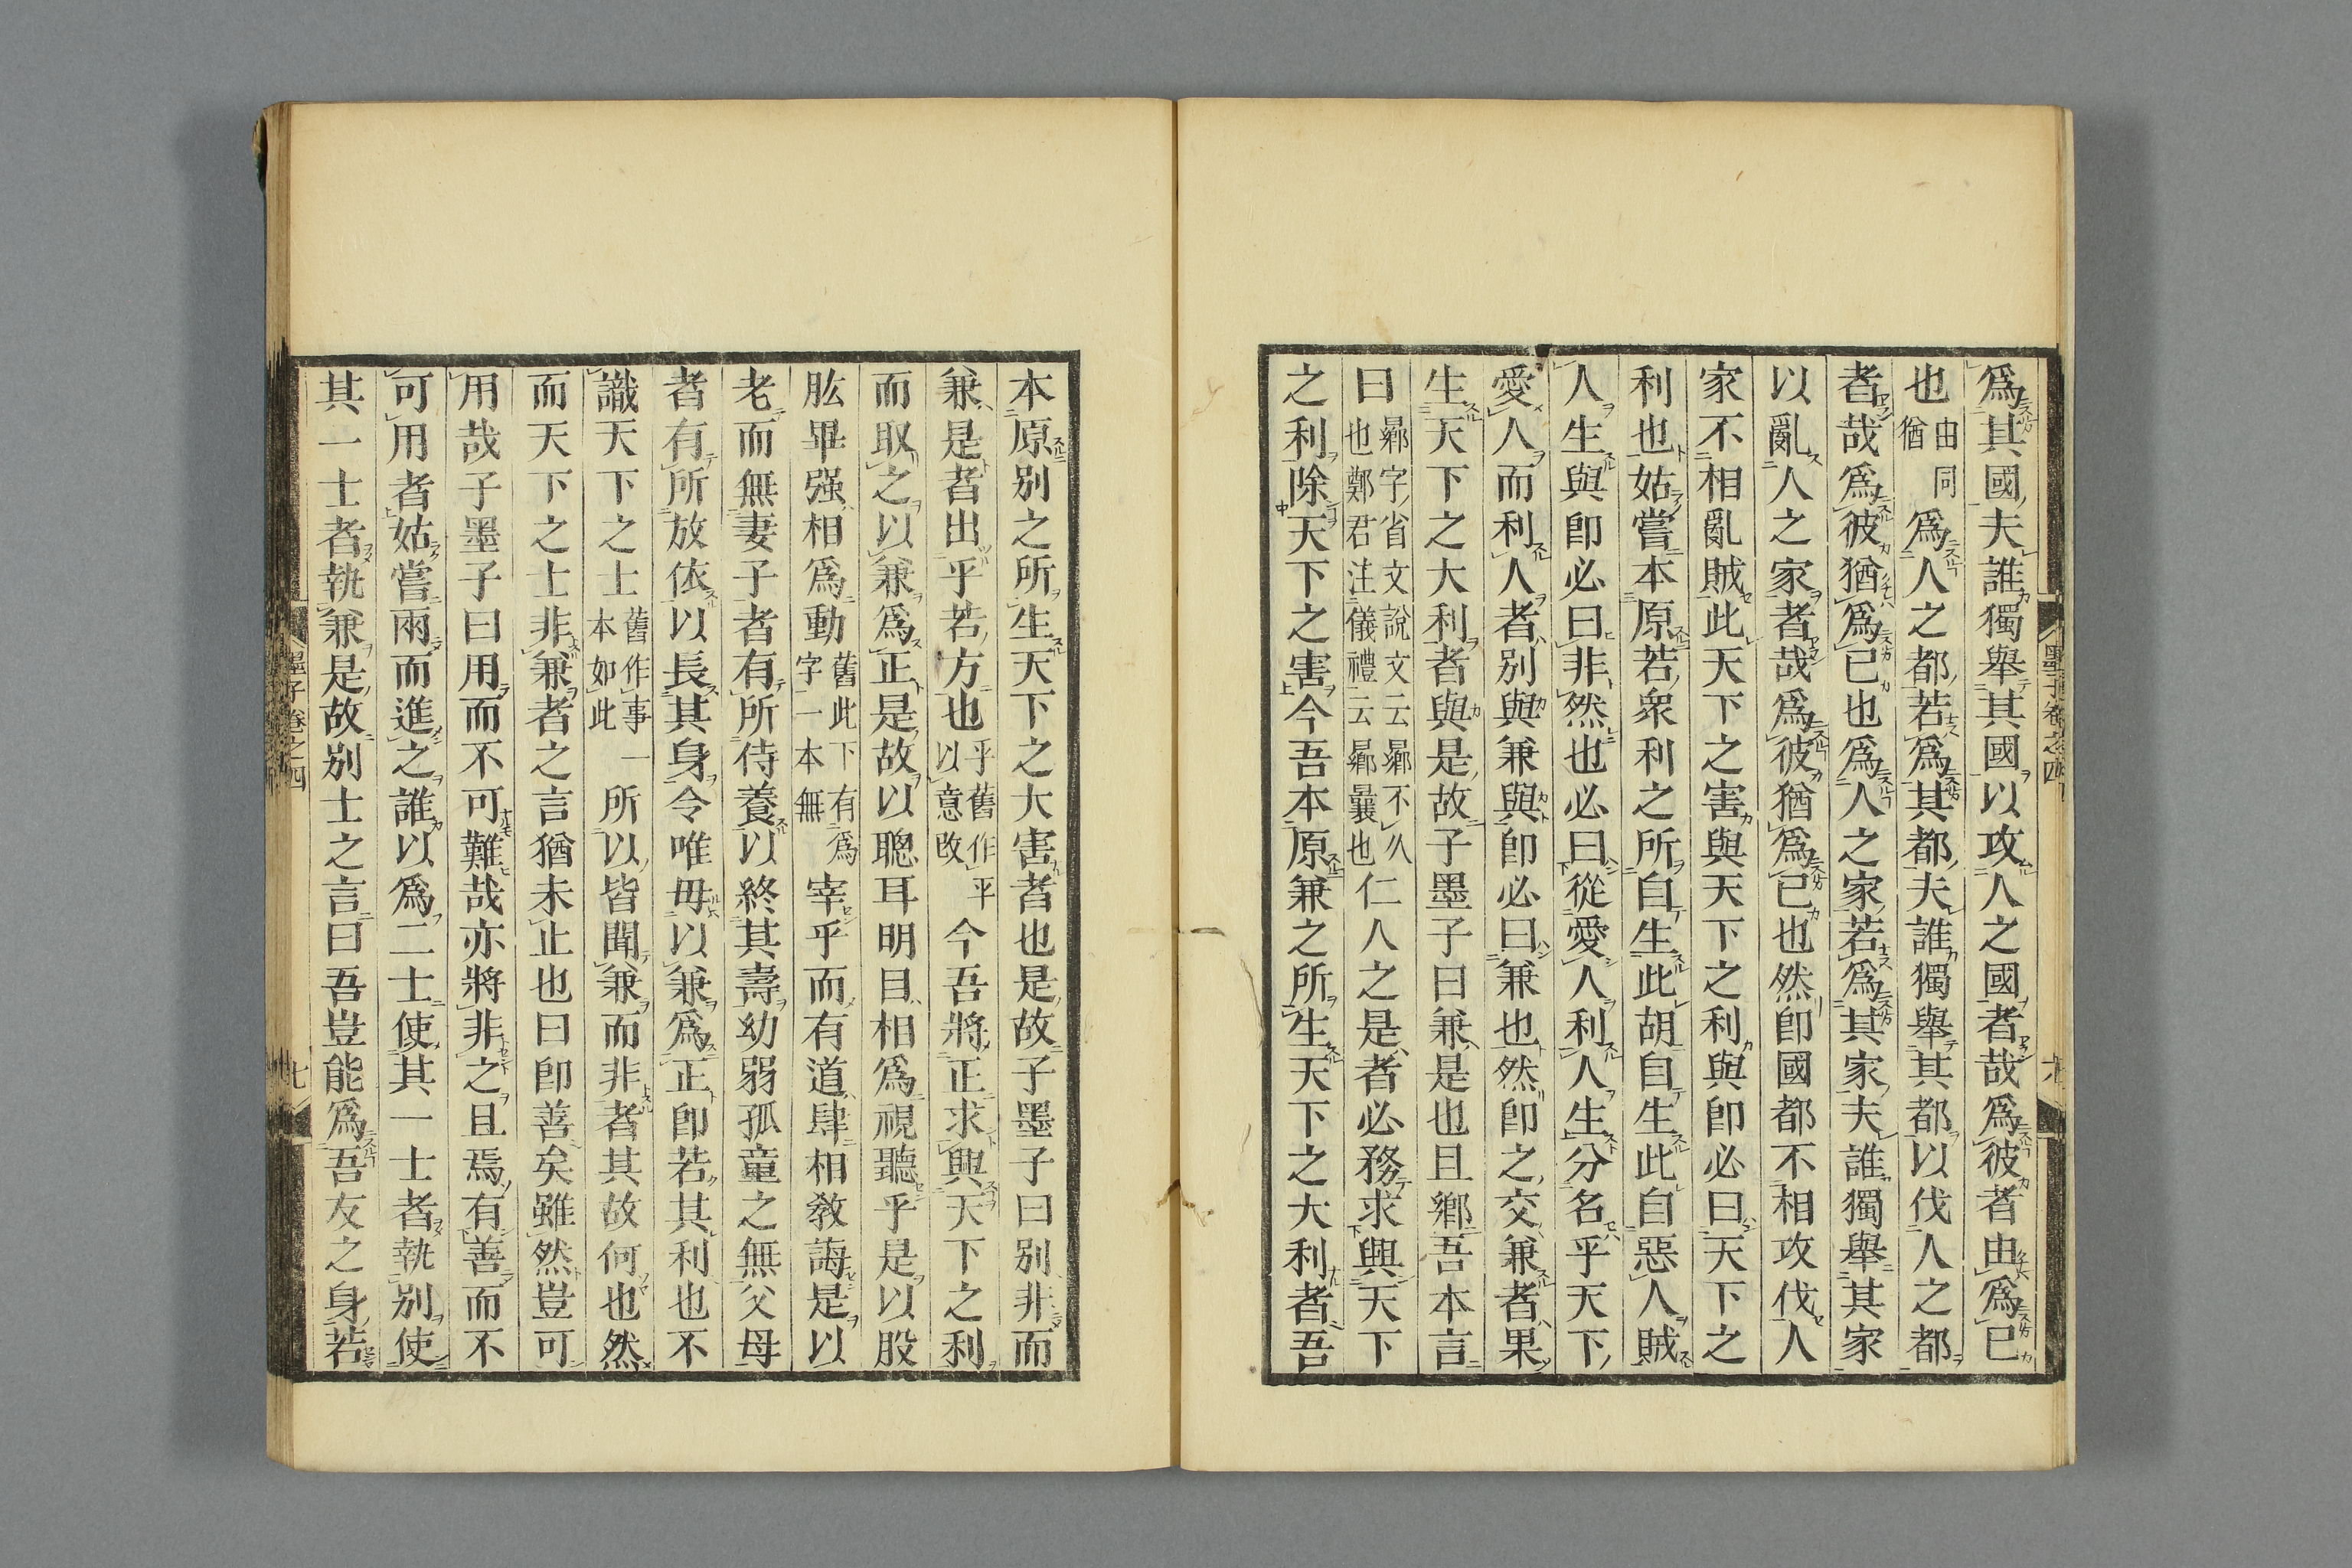 爲其國夫誰獨舉其國以攻人之國者哉爲彼者由爲己
也由同猶爲人之都若爲其都夫誰獨舉其都以伐人之都
者哉爲彼猶爲己也爲人之家若爲其家夫誰獨舉其家
以亂人之家者哉爲彼猶爲己也然卽國都不相攻伐人
家不相亂賊此天下之害與天下之利與卽必曰天下之
利也姑嘗本原若衆利之所自生此胡自生此自惡人賊
人生與卽必曰非然也必曰從愛人利人生分名乎天下
愛人而利人者別與兼與卽必曰兼也然卽之交兼者果
生天下之大利者與是故子墨子曰兼是也且鄉吾本言
曰鄉字省文說文云曏不久也鄭君注儀禮云曏曩也仁人之是者必務求興天下
之利除天下之害今吾本原兼之所生天下之大利者吾
墨子卷之四
本原別之所生天下之大害者也是故子墨子曰別非而
兼是者出乎若方也乎舊作平以意改今吾將正求興天下之利
而取之以兼爲正是故以聰耳明目相爲視聽乎是以股
肱畢强相爲動舊此下有爲字一本無宰乎而有道肆相敎誨是以
老而無妻子者有所侍養以終其壽幼弱孤童之無父母
者有所放依以長其身今唯毋以兼爲正卽若其利也不
識天下之士舊作事一本如此所以皆聞兼而非者其故何也然
而天下之士非兼者之言猶未止也曰卽善矣雖然豈可
用哉子墨子曰用而不可難哉亦將非之且焉有善而不
可用者姑嘗兩而進之誰以爲二士使其一士者執別使
其一士者執兼是故別士之言曰吾豈能爲吾友之身若
墨子卷之四
七